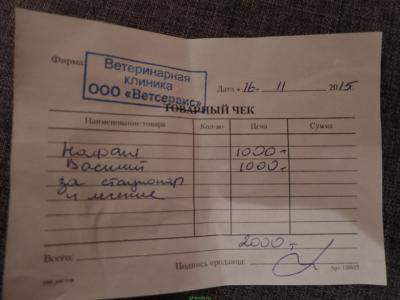 Фирма
Ветеринарная
клиника
ООО «Ветсервис»
Дата «16» 11 2015г.
ТОВАРНЫЙ ЧЕК
Наименование товара Кол-во Цена Сумма
1000-
Василий 1000-
за стационар
и лечение
2000
Всего:
Подпись продавца: